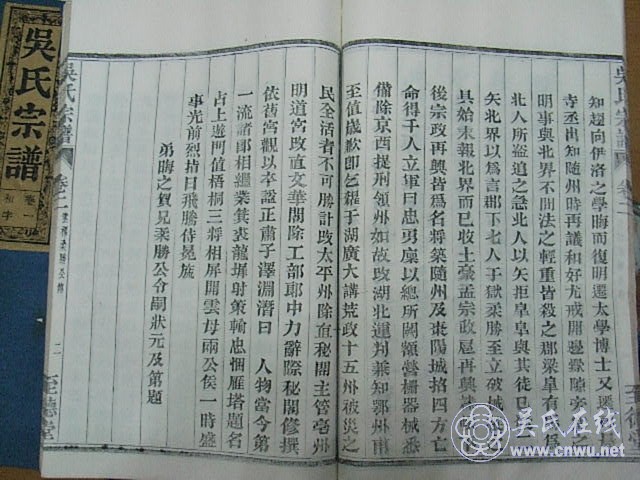 知趨向伊洛之學晦而復明遷太學博士又遷
寺丞出知隨州時再議和好尤戒開邊釁隨旁
明事與北界不問法之輕重皆殺之郡梁皐有
北人所盜追之急北人以矢拒皐皐與其徒
矢北界以為言郡下七人于獄柔勝至立破械
具始末報北界而已收土豪孟宗政扈再興
後宗政再興皆為名將築隨州及棗陽城招四方亡
命得千人立軍曰忠勇廩以總所闕額營柵器械悉
備除京西提刑領州如故改湖北運判兼知鄂州甫
至值歲歉即乞糴于湖廣大講荒政十五州被災之
民全活者不可勝計改太平州除直秘閣主管亳州
明道宮改直文華閣除工部郎中力辭除秘閣修撰
依舊宮觀以卒諡正肅子澤淵潛曰 人物當今第
一流諸郎相繼業箕裘龍墀射策輸忠悃雁塔題名
占上遊門值梧桐三將相屏開雲母兩公侯一時盛
事光前烈㨗曰飛勝侍冕旒
弟晦之賀兄柔勝公令嗣狀元及第題
吳氏宗譜
卷二
柔勝公傳
二
至德堂
吳氏宗譜
至德堂
吳氏宗譜
卷一
吴氏在线
www.cnwu.net